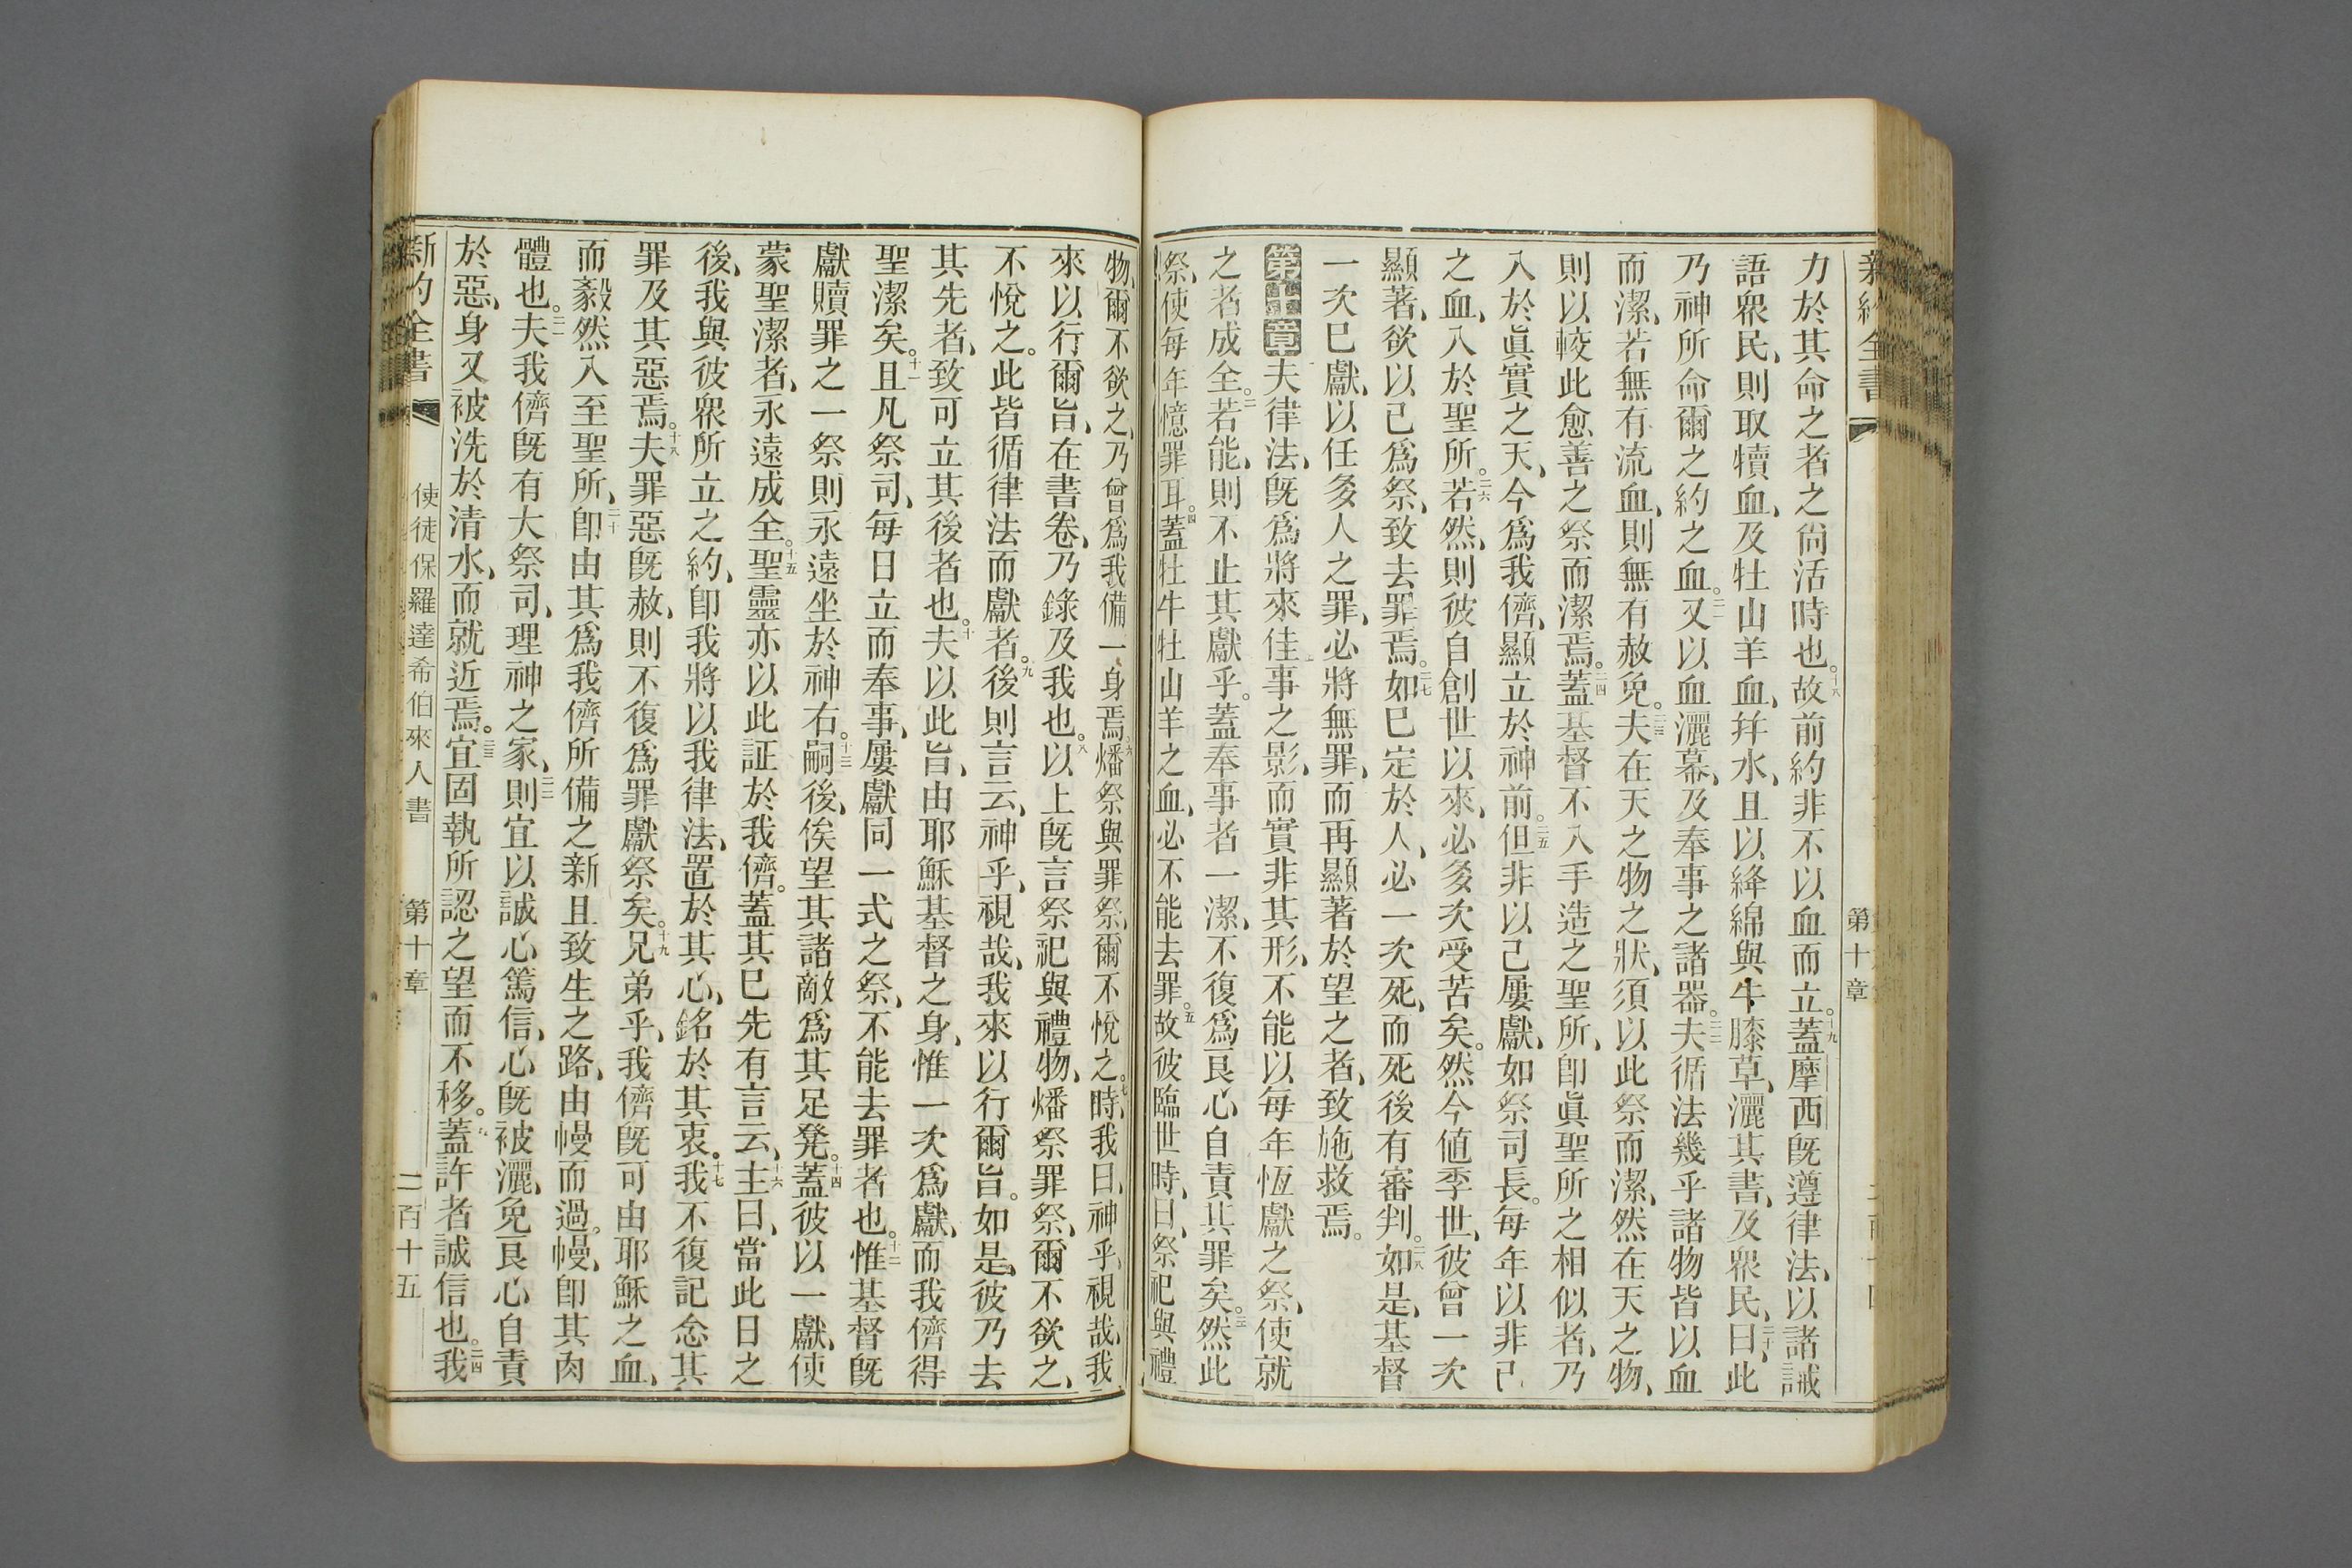 新約全書
第十章
力於其命之者之尙活時也。十八故前約非不以血而立。十九蓋摩西旣遵律法、以諸誡
語衆民、則取犢血、及牡山羊血、幷水、且以絳綿與牛膝草、灑其書、及衆民、二十曰、此
乃神所命爾之約之血。二一又以血灑幕、及奉事之諸器。二二夫循法幾乎諸物皆以血
而潔、若無有流血、則無有赦免。二三夫在天之物之狀、須以此祭而潔、然在天之物、
則以較此愈善之祭而潔焉。二四蓋基督不入手造之聖所、卽眞聖所之相似者、乃
入於眞實之天、今爲我儕、顯立於神前。二五但非以己屢獻、如祭司長。每年以非己
之血、入於聖所。二六若然、則彼自創世以來、必多次受苦矣。然今値季世、彼曾一次
顯著、欲以己爲祭、致去罪焉。二七如已定於人、必一次死、而死後有審判。二八如是、基督
一次已獻、以任多人之罪、必將無罪、而再顯著於望之者、致施救焉。
第十章夫律法、旣爲將來佳事之影、而實非其形、不能以每年恆獻之祭、使就
之者成全。二若能、則不止其獻乎。蓋奉事者一潔、不復爲良心自責其罪矣。三然此
祭、使每年憶罪耳。四蓋牡牛牡山羊之血、必不能去罪。五故彼臨世時、曰、祭祀與禮
物、爾不欲之、乃曾爲我備一身焉。六燔祭與罪祭、爾不悅之。七時、我曰、神乎、視哉、我
來以行爾旨、在書卷、乃錄及我也。八以上旣言祭祀與禮物、燔祭罪祭、爾不欲之、
不悅之。此皆循律法而獻者。九後則言云、神乎、視哉、我來以行爾旨。如是、彼乃去
其先者、致可立其後者也。十夫以此旨、由耶穌基督之身、惟一次爲獻、而我儕得
聖潔矣。十一且凡祭司、每日立而奉事、屢獻同一式之祭、不能去罪者也。十二惟基督旣
獻贖罪之一祭、則永遠坐於神右。十三嗣後、俟望其諸敵爲其足凳。十四蓋彼以一獻、使
蒙聖潔者、永遠成全。十五聖靈亦以此証於我儕。蓋其已先有言云、十六主曰、當此日之
後、我與彼衆所立之約、卽我將以我律法、置於其心、銘於其衷。十七我不復記念其
罪及其惡焉。十八夫罪惡旣赦、則不復爲罪獻祭矣。十九兄弟乎、我儕旣可由耶穌之血、
而毅然入至聖所、二十卽由其爲我儕所備之新且致生之路、由幔而過。幔、卽其肉
體也。二一夫我儕旣有大祭司、理神之家、二二則宜以誠心篤信、心旣被灑、免良心自責
於惡、身又被洗於清水、而就近焉。二三宜固執所認之望而不移。蓋許者誠信也。二四我
新約全書
使徒保羅達希伯來人書
第十章
二百十五